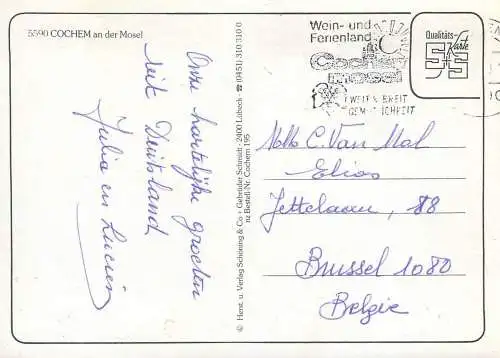 5590 COCHEM an der Mosel
Onze hartelijke groeten
uit Duitsland
Julia en Lucien
© Herst. u. Verlag Schöning & Co + Gebrüder Schmidt · 2400 Lübeck · ☎ (0451) 310 310 0
zu Bestell-Nr. Cochem 195
Wein- und
Ferienland
Cochem
Mosel
WEIT & BREIT
GEMÜTLICHKEIT
Qualitäts-
Karte
S+S
C. Van Mol
Elios
, 88
Brussel 1080
Belgie